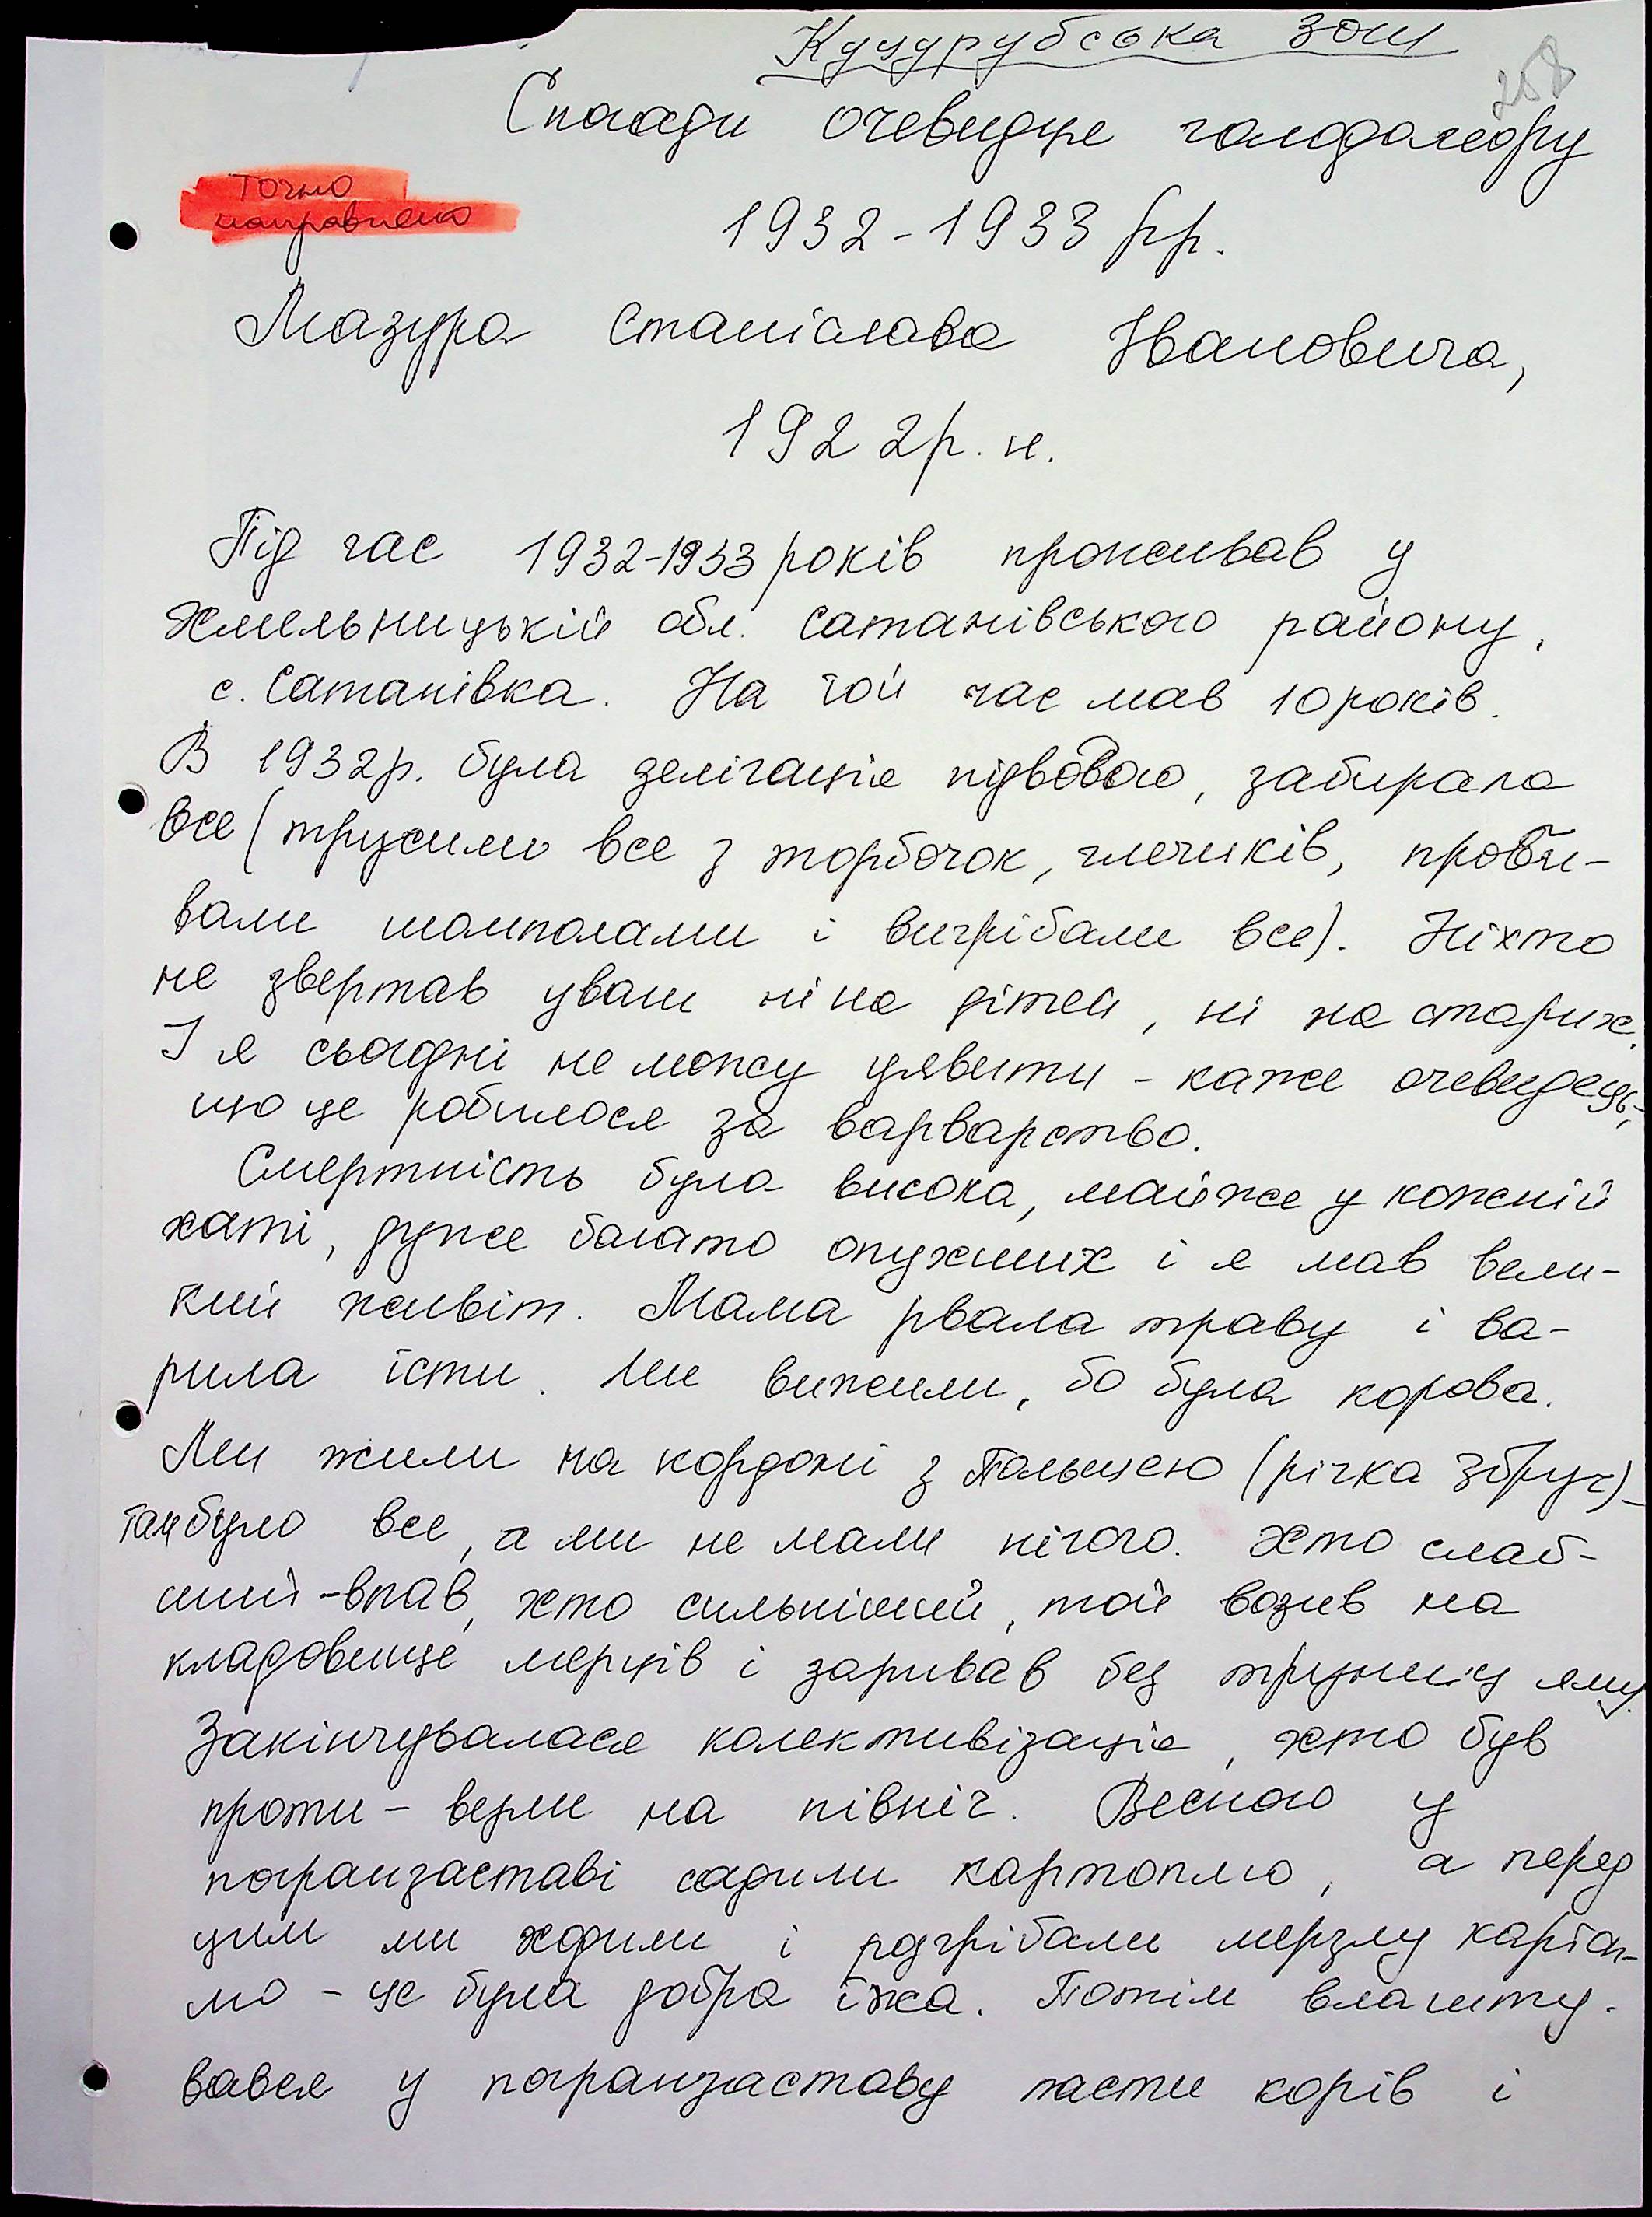 Куцурубська ЗОШ
258
Спогади очевидця голодомору
точно
направлено
1932-1933 рр.
Мазура Станіслава Івановича,
1922 р. н.
Під час 1932-1933 років проживав у
Хмельницькій обл. Сатанівського району,
с. Сатанівка. На той час мав 10 років.
В 1932р. була делігація підводою, забирала
все (трусили все з торбочок, глечиків, проби-
вали шомполами і вигрібали все). Ніхто
не звертав уваги ні на дітей, ні на старих.
І я сьогодні не можу уявити - каже очевидець,-
що це робилося за варварство.
Смертність була висока, майже у кожній
хаті, дуже багато опухших і я мав вели-
кий живіт. Мама рвала траву і ва-
рила їсти. Ми вижили, бо була корова.
Ми жили на кордоні з Польщею (річка Збруч)-
там було все, а ми не мали нічого. Хто слаб-
ший-впав, хто сильніший, той возив на
кладовище мерців і заривав без труни у яму.
Закінчувалася колективізація, хто був
проти - везли на північ. Весною у
погранзаставі садили картоплю, а перед
цим ми ходили і розгрібали мерзлу картоп-
лю - це була добра їжа. Потім влашту-
вався у погранзаставу пасти корів і